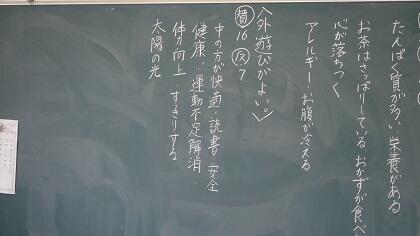 たんぱく質が多い、栄養がある
お茶はさっぱりしている、おかずが食べ
心が落ちつく
アレルギー・お腹が冷える
〈外遊びがよい。〉
賛16 反7
中の方が快適・読書・安全
健康・運動不足解消・
体力向上 すっきりする
太陽の光